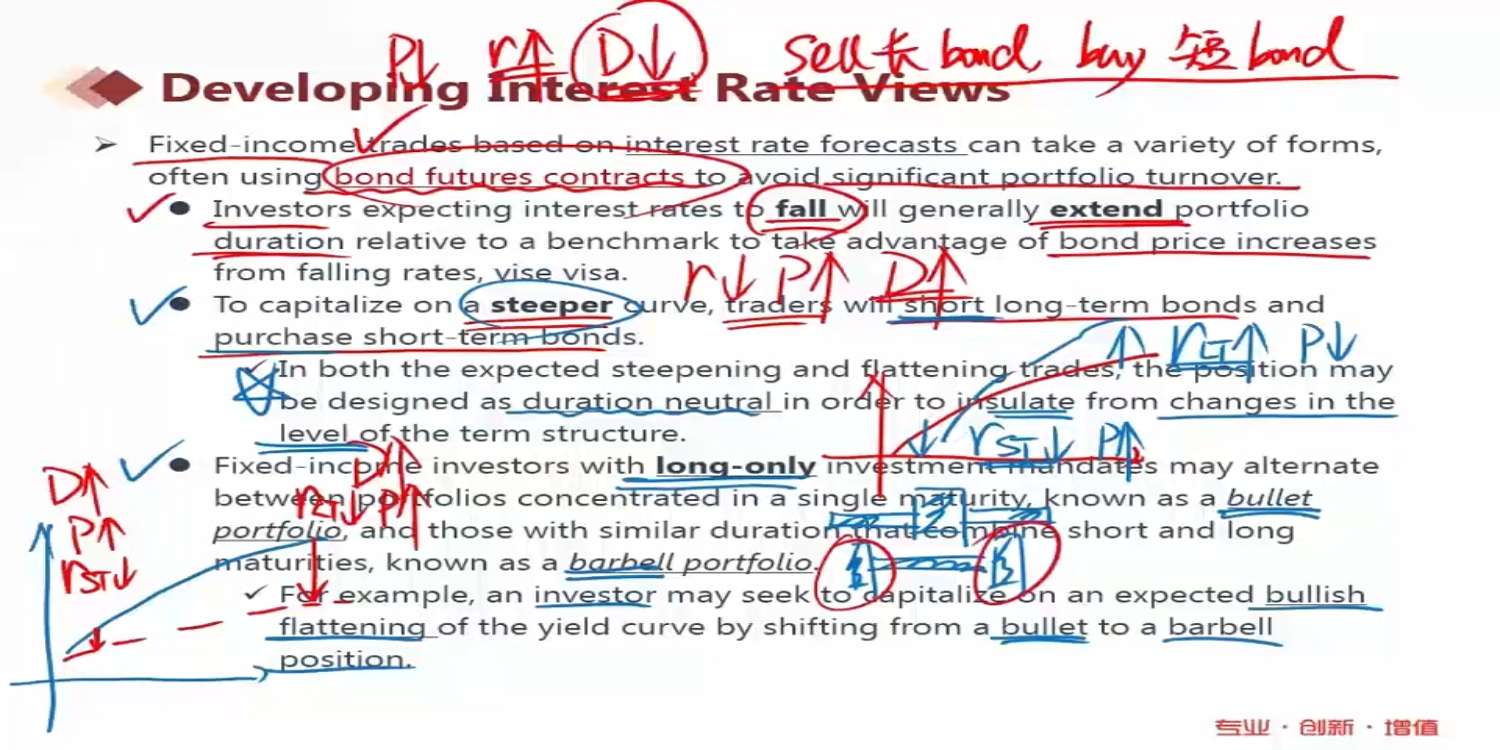 P↓ r↑ D↓ sell 长 bond, buy 短 bond
Developing Interest Rate Views
➢ Fixed-income trades based on interest rate forecasts can take a variety of forms,
often using bond futures contracts to avoid significant portfolio turnover.
● Investors expecting interest rates to fall will generally extend portfolio
duration relative to a benchmark to take advantage of bond price increases
from falling rates, vise visa.
r↓ P↑ D↑
● To capitalize on a steeper curve, traders will short long-term bonds and
purchase short-term bonds.
↑ rLT↑ P↓
✓ In both the expected steepening and flattening trades, the position may
be designed as duration neutral in order to insulate from changes in the
level of the term structure.
↓ rST↓ P↑
● Fixed-income investors with long-only investment mandates may alternate
between portfolios concentrated in a single maturity, known as a bullet
portfolio, and those with similar duration that combine short and long
maturities, known as a barbell portfolio.
D↑
rLT↓ P↑
D↑
P↑
rST↓
✓ For example, an investor may seek to capitalize on an expected bullish
flattening of the yield curve by shifting from a bullet to a barbell
position.
专业 · 创新 · 增值